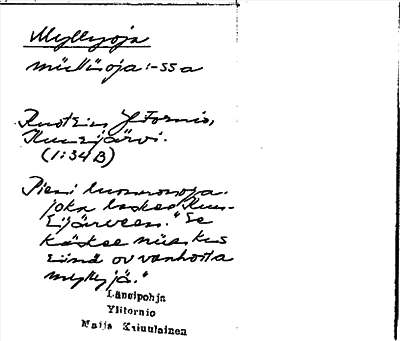 Myllyoja
müllüoja :-ssa
Ruotsin Ytornio,
Kuusijärvi.
(1:34 B)
Pieni luonnonoja.
joka laskee Kuu-
sijärveen. "Se
käskee
siinä ov vanhoita
myllyjä."
Länsipohja
Ylitornio
Maija Kriuulainen